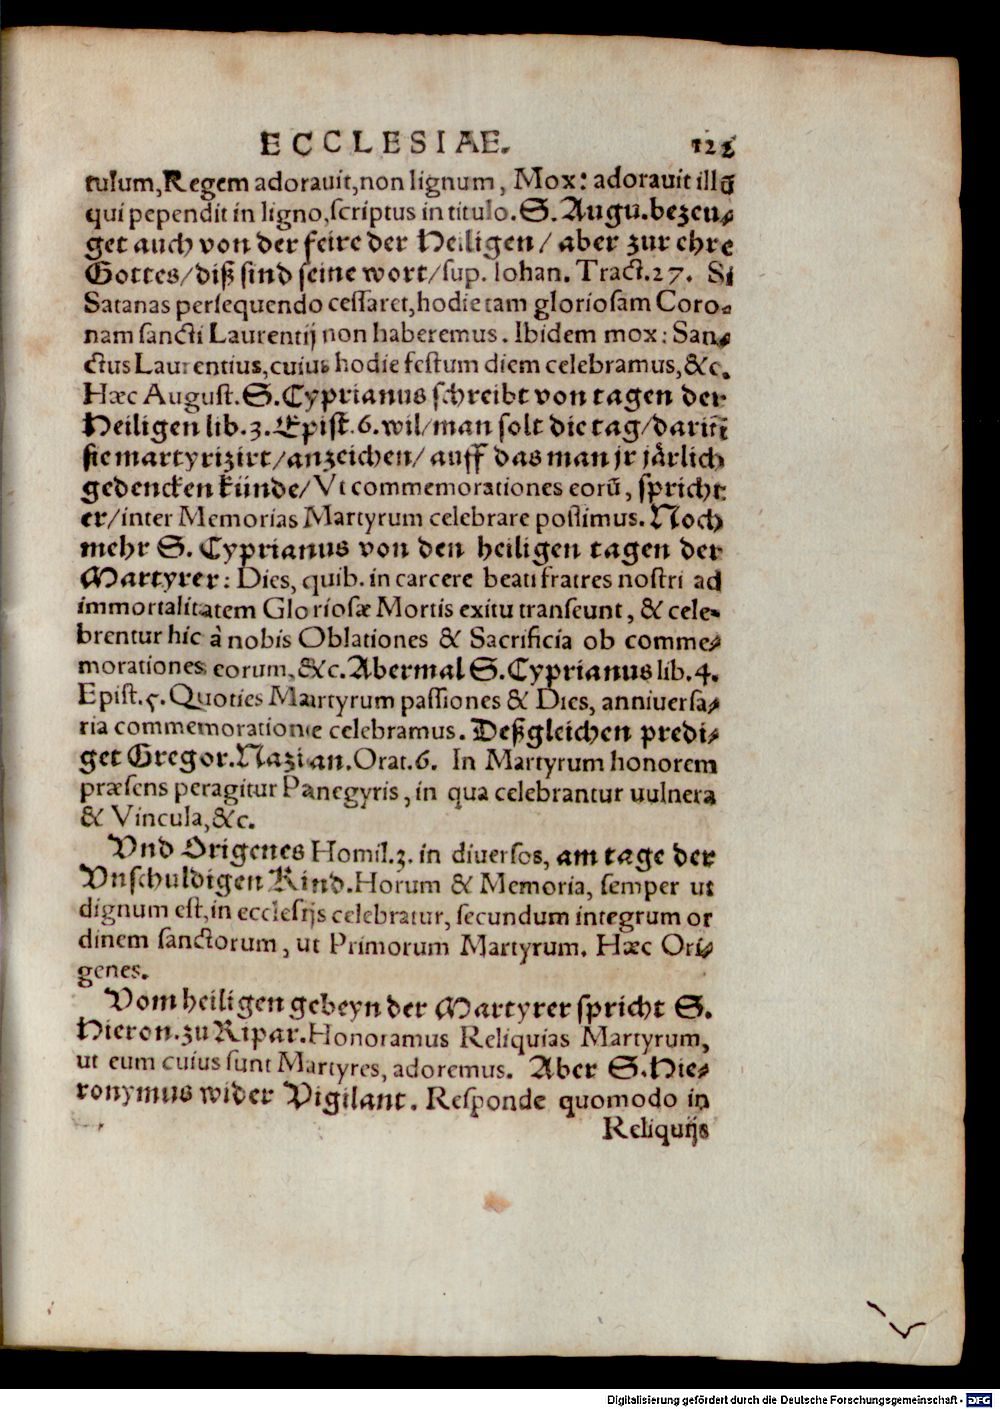 ECCLESIAE. 121
tulum, Regem adorauit, non lignum, Mox: adorauit illũ
qui pependit in ligno, scriptus in titulo. S. Augu. bezeu⸗
get auch von der feire der Heiligen / aber zur ehre
Gottes / diß sind seine wort / sup. Iohan. Tract. 27. Si
Satanas persequendo cessaret, hodie tam gloriosam Coro⸗
nam sancti Laurentij non haberemus. Ibidem mox: San⸗
ctus Laurentius, cuius hodie festum diem celebramus, &c.
Hæc August. S. Cyprianus schreibt von tagen der
Heiligen lib. 3. Epist. 6. wil / man solt die tag / dariñ
sie martyrizirt / anzeichen / auff das man jr järlich
gedencken künde / Vt commemorationes eorũ, spricht
er / inter Memorias Martyrum celebrare possimus. Noch
mehr S. Cyprianus von den heiligen tagen der
Martyrer: Dies, quib. in carcere beati fratres nostri ad
immortalitatem Gloriosæ Mortis exitu transeunt, & cele⸗
brentur hic à nobis Oblationes & Sacrificia ob comme⸗
morationes eorum, &c. Abermal S. Cyprianus lib. 4.
Epist. 5. Quoties Martyrum passiones & Dies, anniuersa⸗
ria commemoratione celebramus. Deßgleichen predi⸗
get Gregor. Nazian. Orat. 6. In Martyrum honorem
præsens peragitur Panegyris, in qua celebrantur uulnera
& Vincula, &c.
Vnd Origenes Homil. 3. in diuersos, am tage der
Vnschuldigen Kind. Horum & Memoria, semper ut
dignum est, in ecclesijs celebratur, secundum integrum or
dinem sanctorum, ut Primorum Martyrum. Hæc Ori⸗
genes.
Vom heiligen gebeyn der Martyrer spricht S.
Hieron. zu Ripar. Honoramus Reliquias Martyrum,
ut eum cuius sunt Martyres, adoremus. Aber S. Hie⸗
ronymus wider Vigilant. Responde quomodo in
Reliquijs
Digitalisierung gefördert durch die Deutsche Forschungsgemeinschaft - DFG